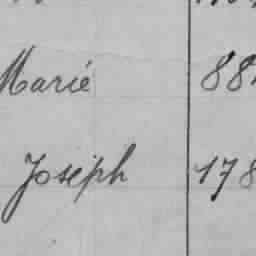 Marie 88
Joseph 178